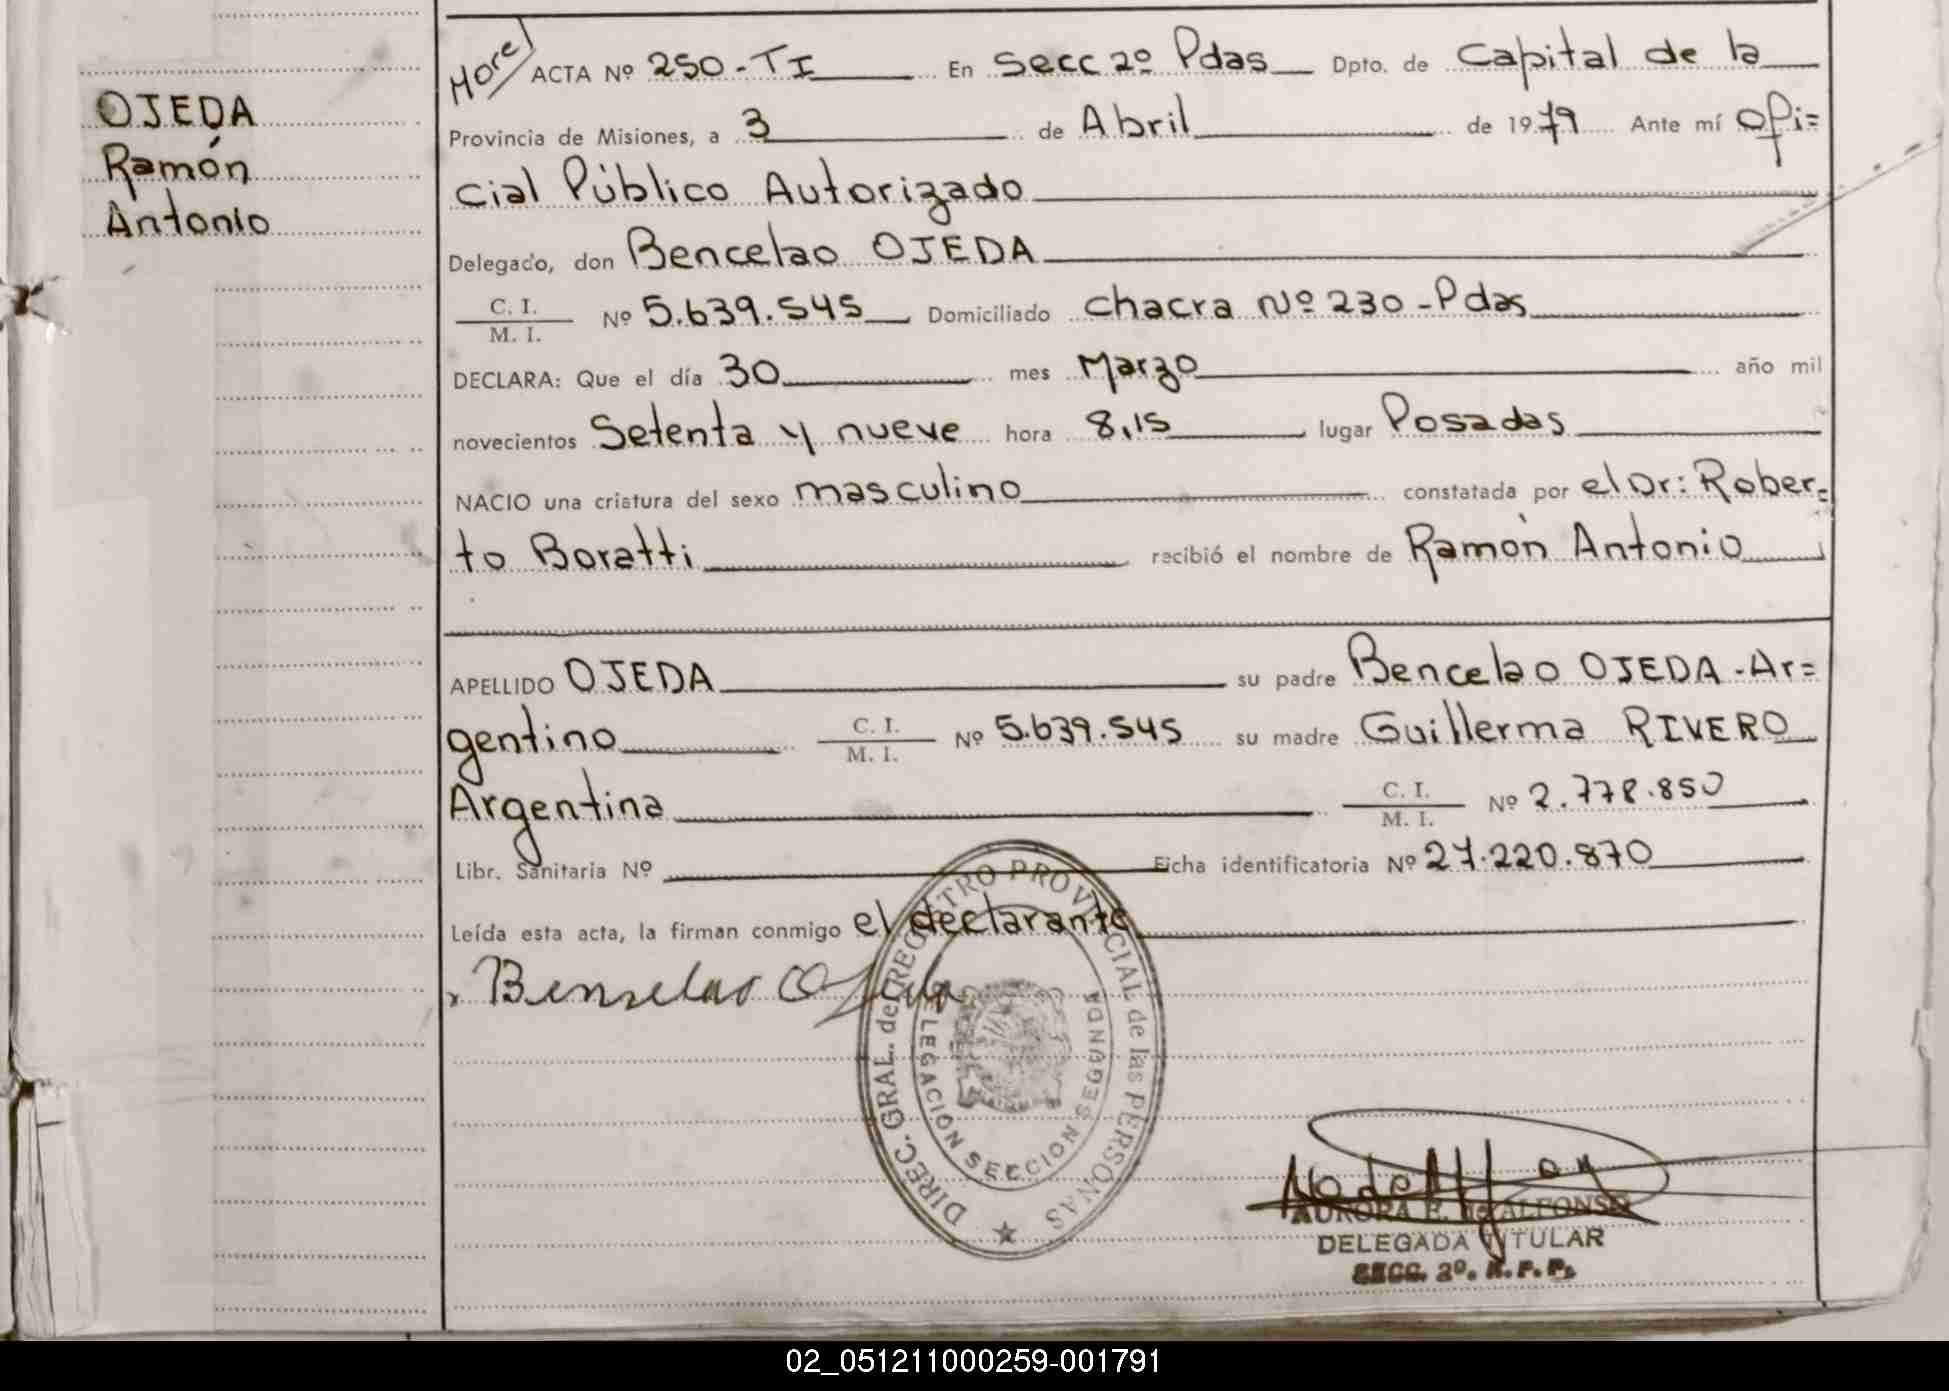 OJEDA
Ramón
Antonio
ACTA Nº 250-TI En Secc 2º Pdas Dpto. de Capital de la
Provincia de Misiones, a 3 de Abril de 1979 Ante mí Ofi=
cial Público Autorizado
Delegado, don Bencelao OJEDA
C. I.
M. I. Nº 5.639.545 Domiciliado Chacra Nº 230-Pdas
DECLARA: Que el día 30 mes Marzo año mil
novecientos Setenta y nueve hora 8,15 lugar Posadas
NACIO una criatura del sexo masculino constatada por el Dr: Rober=
to Boratti recibió el nombre de Ramón Antonio
APELLIDO OJEDA su padre Bencelao OJEDA-Ar=
gentino C. I.
M. I. Nº 5.639.545 su madre Guillerma RIVERO
Argentina C. I.
M. I. Nº 2.778.850
Libr. Sanitaria Nº Ficha identificatoria Nº 27.220.870
Leída esta acta, la firman conmigo el declarante
Benselao Ojeda
DIREC. GRAL. del REGISTRO PROVINCIAL de las PERSONAS
DELEGACION SECCION SEGUNDA
AURORA E. de ALFONSO
DELEGADA TITULAR
SECC. 2º. R. P. P.
02_051211000259-001791